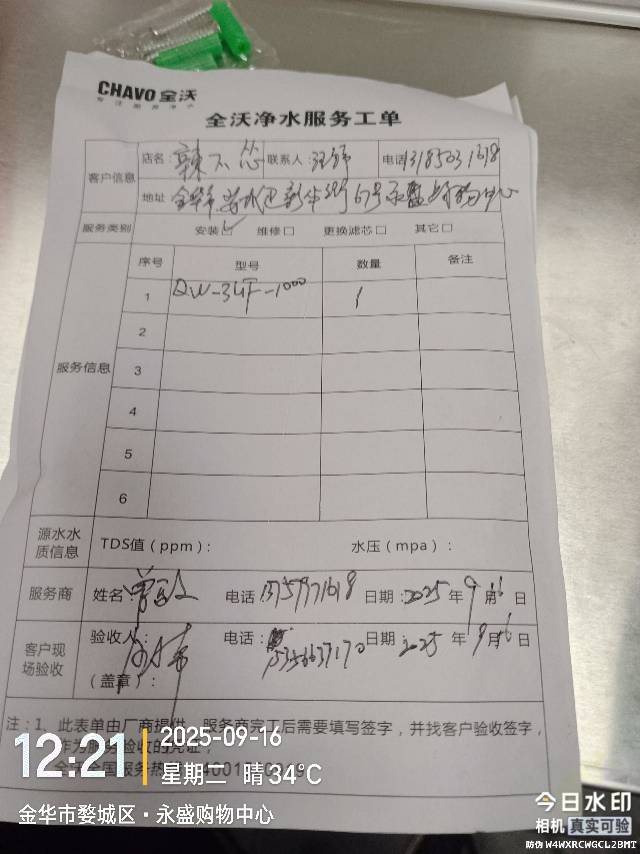 CHAVO 全沃
专注厨房净水
全沃净水服务工单
客户信息 店名: 辣不怂 联系人: 电话
地址 金华市
服务类别 安装☑ 维修□ 更换滤芯□ 其它□
服务信息 序号 型号 数量 备注
1 QW-3UF-1000 1
2
3
4
5
6
源水水质信息 TDS值(ppm): 水压(mpa):
服务商 姓名: 电话 日期: 2025年9月16日
客户现场验收 验收人: 电话: 日期 2025年9月16日
(盖章):
注:1、此表单由厂商提供,服务商完工后需要填写签字,并找客户验收签字,
作为服务验收的凭证;
全沃全国服务热
12:21 2025-09-16
星期二 晴 34℃
金华市婺城区·永盛购物中心
今日水印
相机 真实可验
防伪 W4WXRCWGCL2BMT